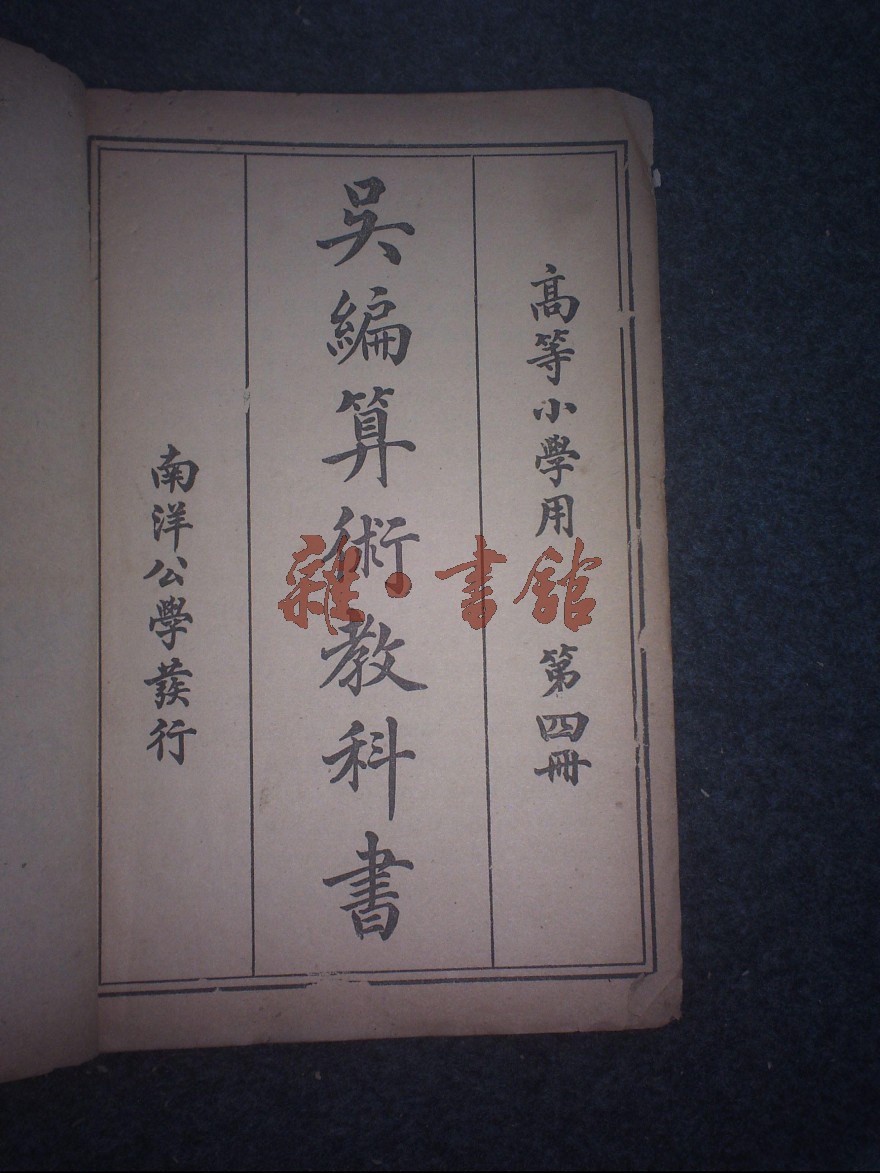 高等小學用 第四冊
吳編算術教科書
南洋公學發行
雜·書館